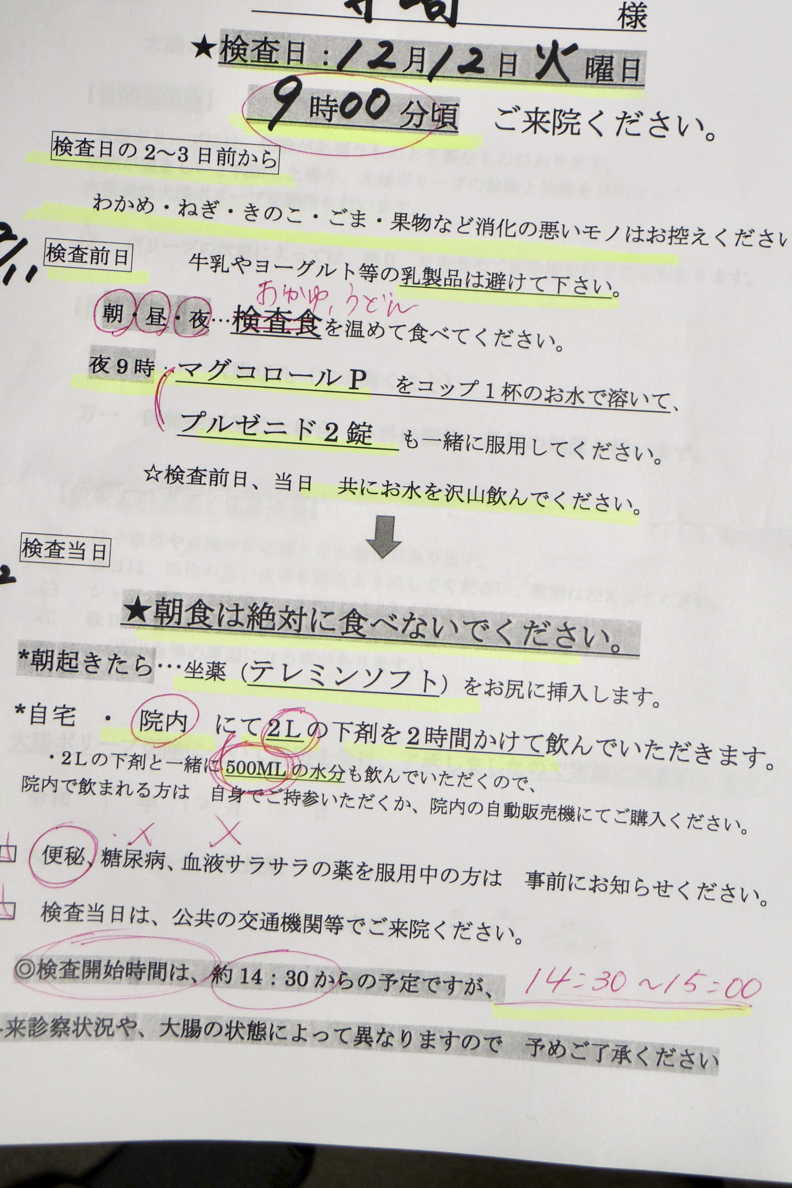 様
★検査日：12月12日 火 曜日
9時00分頃 ご来院ください。
検査日の2～3日前から
わかめ・ねぎ・きのこ・ごま・果物など消化の悪いモノはお控えください
検査前日 牛乳やヨーグルト等の乳製品は避けて下さい。
おかゆ、うどん
朝・昼・夜…検査食を温めて食べてください。
夜9時：マグコロールP をコップ1杯のお水で溶いて、
プルゼニド2錠 も一緒に服用してください。
☆検査前日、当日 共にお水を沢山飲んでください。
検査当日
★朝食は絶対に食べないでください。
*朝起きたら…坐薬（テレミンソフト）をお尻に挿入します。
*自宅 ・ 院内 にて2Lの下剤を2時間かけて飲んでいただきます。
・2Lの下剤と一緒に500MLの水分も飲んでいただくので、
院内で飲まれる方は 自身でご持参いただくか、院内の自動販売機にてご購入ください。
□ 便秘、糖尿病、血液サラサラの薬を服用中の方は 事前にお知らせください。
□ 検査当日は、公共の交通機関等でご来院ください。
◎検査開始時間は、約14：30からの予定ですが、 14:30～15:00
来診察状況や、大腸の状態によって異なりますので 予めご了承ください